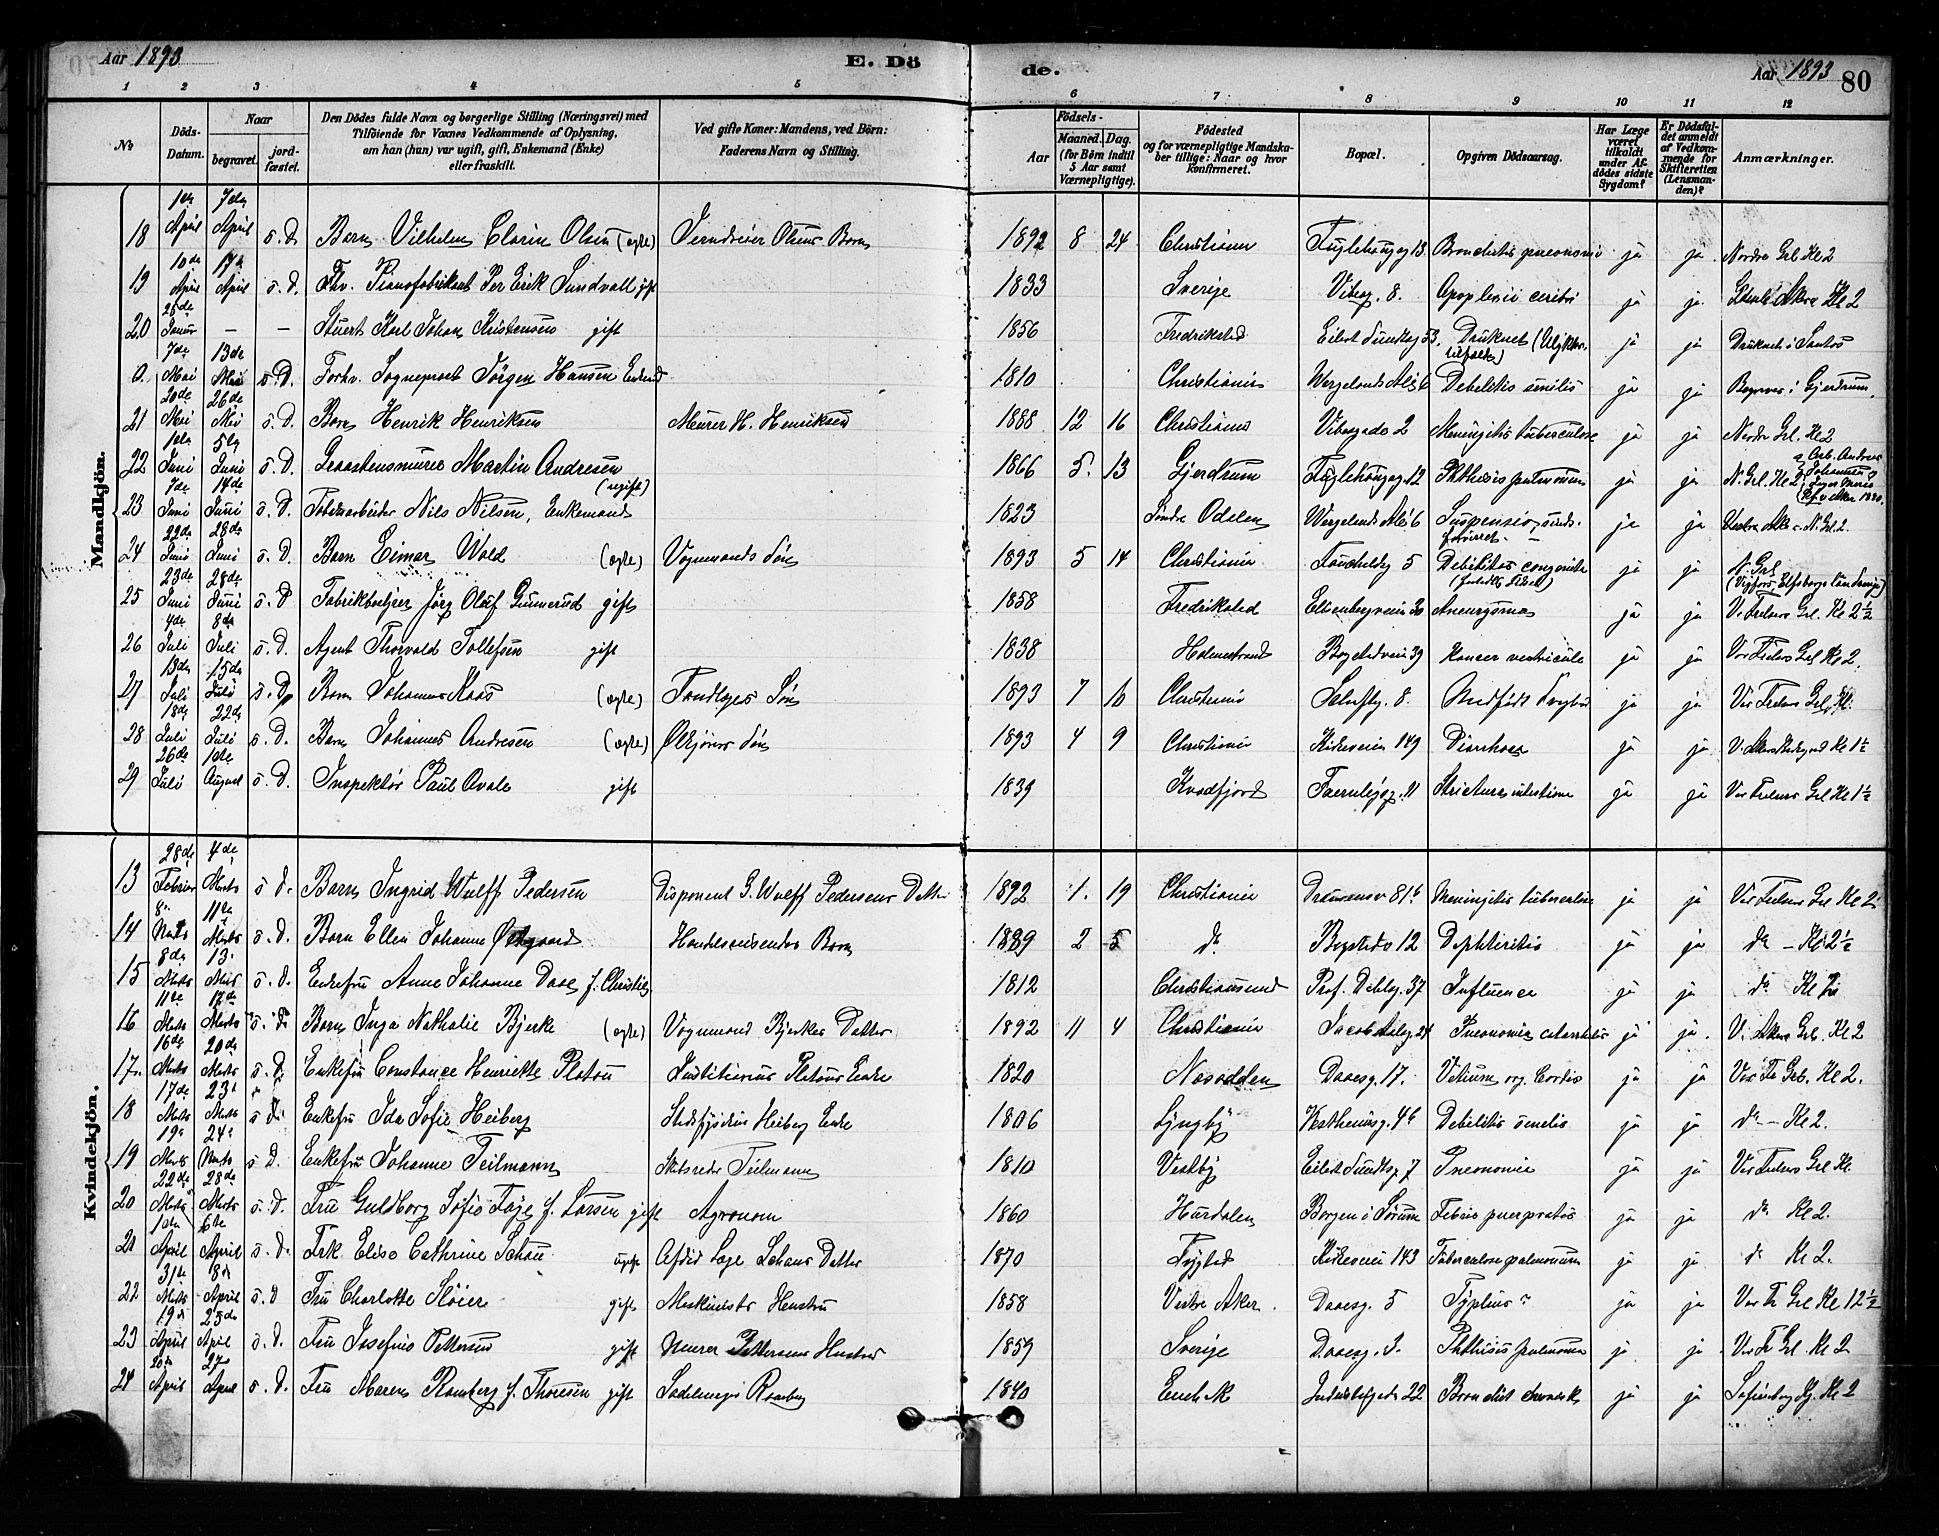 Aar 1893 E. Dö de. Aar 1893 80
1 2 3 4 5 6 7 8 9 10 11 12
No
Döds-Datum.
Naar begravet. jordfæstet.
Den Dödes fulde Navn og borgerlige Stilling (Næringsvei) med Tilföiende for Voxnes Vedkommende af Oplysning, om han (hun) var ugift, gift, Enkemand (Enke) eller fraskilt.
Ved gifte Koner: Mandens, ved Börn: Faderens Navn og Stilling.
Födsels-
Aar Maaned. Dag.
(for Börn indtil 5 Aar samt Værnepligtige).
Födested og for værnepligtige Mandskaber tillige: Naar og hvor konfirmeret.
Bopæl.
Opgiven Dödsaarsag.
Har Læge været tilkaldt under Afdödes sidste Sygdom?
Er Dödsfaldet anmeldt af Vedkommende for Skifteretten (Lensmanden)?
Anmærkninger.
Mandkjön.
18 1ste April 7de April s. D Barn Vilhelm Olsen (ægte) Olsens Barn 1892 8 24 Christiania 13 ja ja Nordre Grl Kl 2
19 10de April 17de April s. D. Fhv. Pianofabrikant Per Erik Sundvall gift 1833 Sverige Vibeg. 8. ja ja Kl 2
20 25de Januar — — Stuert Karl Johan Kristensen gift 1856 Fredriksted Eilert Sundtsg 53. Druknet ja ja Druknet i Santos
0. 7de Mai 13de Mai s. D. Forhv. Sogneprest Jörgen Hansen Enkmd 1810 Christiania Wergelands Alé 6 Debilitas senilis ja ja Begraves i Gjerdrum.
21 20de Mai 26de Mai s. D. Barn Henrik Henriksen Murer H. Henriksen 1888 12 16 Christiania Vibesgade 2 Meningitis tuberculose ja ja Nordre Grl. Kl 2
22 1ste Juni 5te Juni s. D. Graastensmurer Martin Andresen (ugift) 1866 5. 13 Gjerdrum 12 Phthisis pulmonum ja ja N. Grl. Kl 2
23 7de Juni 14de Juni s. D. Nils Nilsen, Enkemand 1823 Söndre Odalen Wergelands Alé 6 Suspensio ja ja N. Grl 2.
24 22de Juni 28de Juni s. D. Barn Einar Wold (ægte) Vognmands Sön 1893 5 14 Christiania 5 Debilitas congenita ja ja N. Grl
25 23de Juni 28de Juni s. D Jörg Olaf Gunnerud gift 1858 Fredriksted Eilenbergveien 20 Aneurysma ja ja Vor Frelsers Grl. Kl 2½
26 4de Juli 8de Juli s. D. Agent Thorvald Tollefsen gift 1838 Holmestrand Bogstadveien 39 Kancer ventricule ja ja Vor Frelsers Grl Kl 2.
27 13de Juli 15de Juli s. D. Barn Johannes Kaas (ægte) Tandlæges Sön 1893 7 10 Christiania 8. Medfödt ja ja Vor Frelsers Grl, Kl.
28 18de Juli 22de Juli s. D. Barn Johannes Andresen (ægte) Ölkjörers Sön 1893 4 9 Christiania Kirkeveien 149 Diarrhoea ja ja Kl 1½
29 26de Juli 1ste August s. D. Inspektör Paul Qvale gift 1839 Kvædfjord 11 Strictura intestini ja ja Vor Frelsers Grl Kl 1½
Kvindekjön.
13 28de Februar 4de Marts s D. Barn Ingrid Wulff Pedersen Disponent G. Wulff Pedersens Datter 1892 1. 19 Christiania Drammensv 81b Meningitis tuberculose ja ja Vor Frelsers Grl Kl 2
14 8de Marts 11te Marts s. D. Barn Ellen Johanne Østgaard Handelsreisendes Barn 1889 2 5 do Bogstadv 12 Diphteritis ja ja do — Kl 2½
15 8de Marts 13. Marts s. D. Enkefru Anne Johanne Daae 1812 Christiansund Prof. Dahlsg. 37 Influenca ja ja do Kl 2
16 11te Marts 17de Marts s. D. Barn Inga Nathalie Bjerke (ægte) Vognmand Bjerkes Datter 1892 11 4 Christiania Jacob Aalsg. 24 Pneumonia catarrhalis ja ja. V. Akers Grl. Kl 2
17. 16de Marts 20de Marts s. D. Enkefru Constance Henriette Platou Platous Enke 1820 Nesodden Daaesg. 17. Vitium org. Cordis ja ja Vor Fr Grl. Kl 2.
18 17de Marts 23. Marts s D. Enkefru Ida Sofie Heiberg Heiberg Enke 1806 Lyngby 46 Debilitas senilis ja ja do — Kl 2.
19 19. Marts 24. Marts s D. Enkefru Johanne Teilmann Teilmann 1810 Vestby Eilert Sundtsg. 7 Pneumonie ja ja Vor Frelsers Grl Kl
20 22de Marts 28de Marts s. D. Fru Guldborg Sofie Föje f. Larsen gift Agronom 1860 Hurdalen Borgen i Sörum Febris puerperalis ja ja do Kl 2.
21 1ste April 6te April s. D. Frk. Elise Cathrine Schou ugift Afdöd Læge Schous Datter 1870 Kirkeveien 143 Tuberculose pulmonum ja ja do Kl 2.
22 31te Marts 8de April s. D Fru Charlotte Slöier gift Maskinists Hustru 1858 Vestre Aker. Daaesg. 5 Typhus ja ja Vor Fr Grl Kl 12½
23 19de April 25de April s. D. Fru Josefine Pettersen gift Murer Pettersens Hustru 1859 Sverige Daaesg. 3. Phthisis pulmonum ja ja Vor Fr Grl. Kl 2
24 20de April 27de April s. D. Fru Maren Ramberg f. Thoresen gift Sadelmager Ramberg 1840 Enebak 22 Bronchit chronisk ja ja Sofienberg Kg. Kl 2